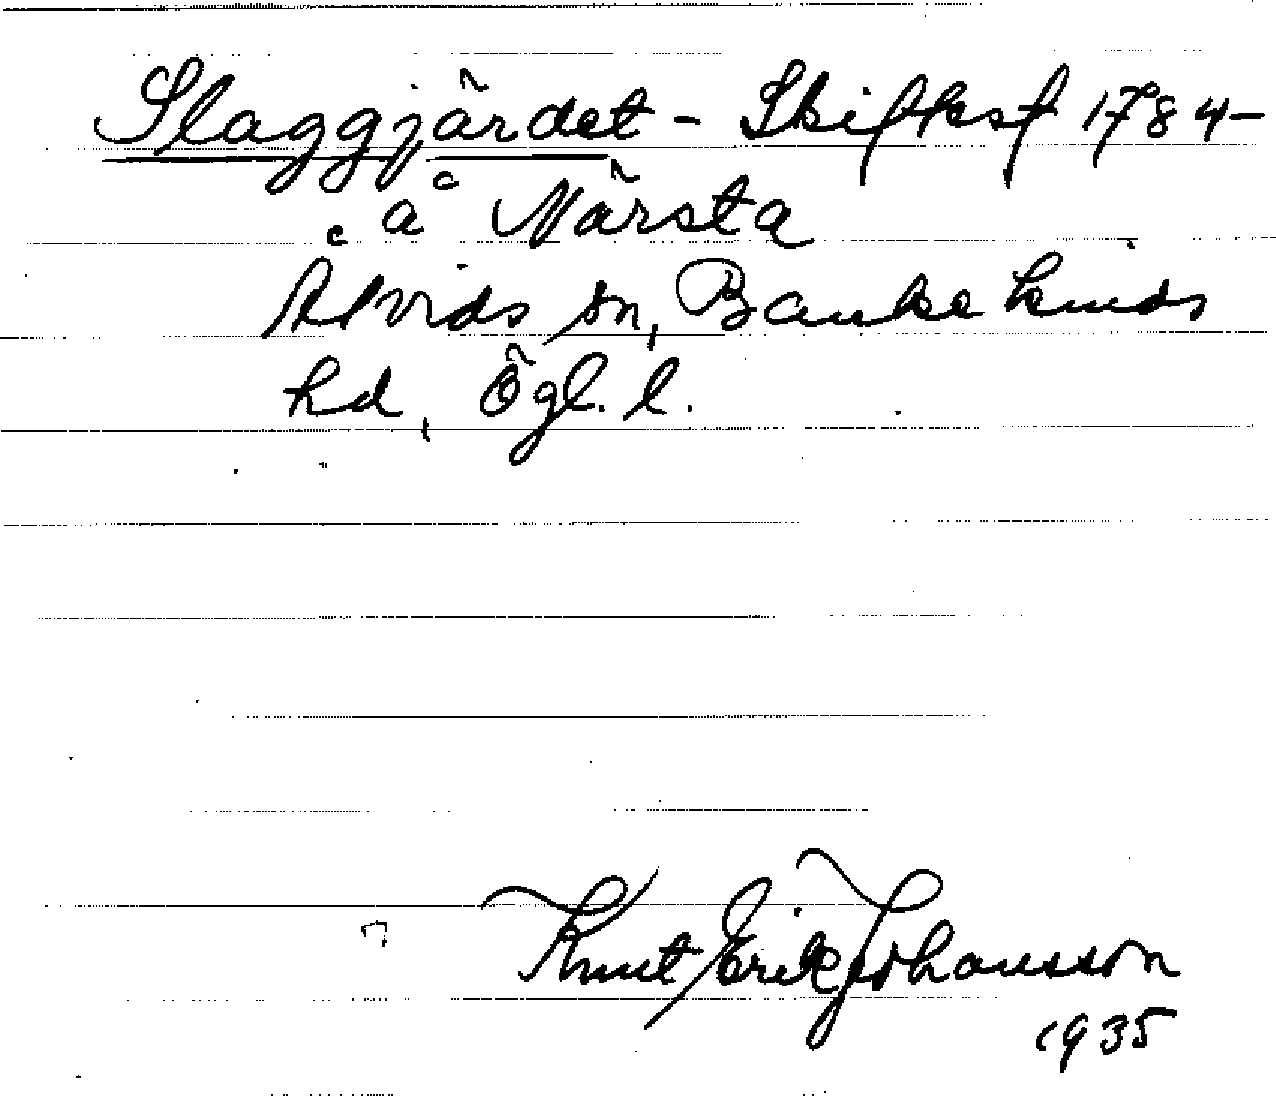 Slaggjärdet - Skifteskt 1784-
å Närsta
Askeby sn, Bankekinds
hd, Ögl. l.
Knut Erik Johansson
1935